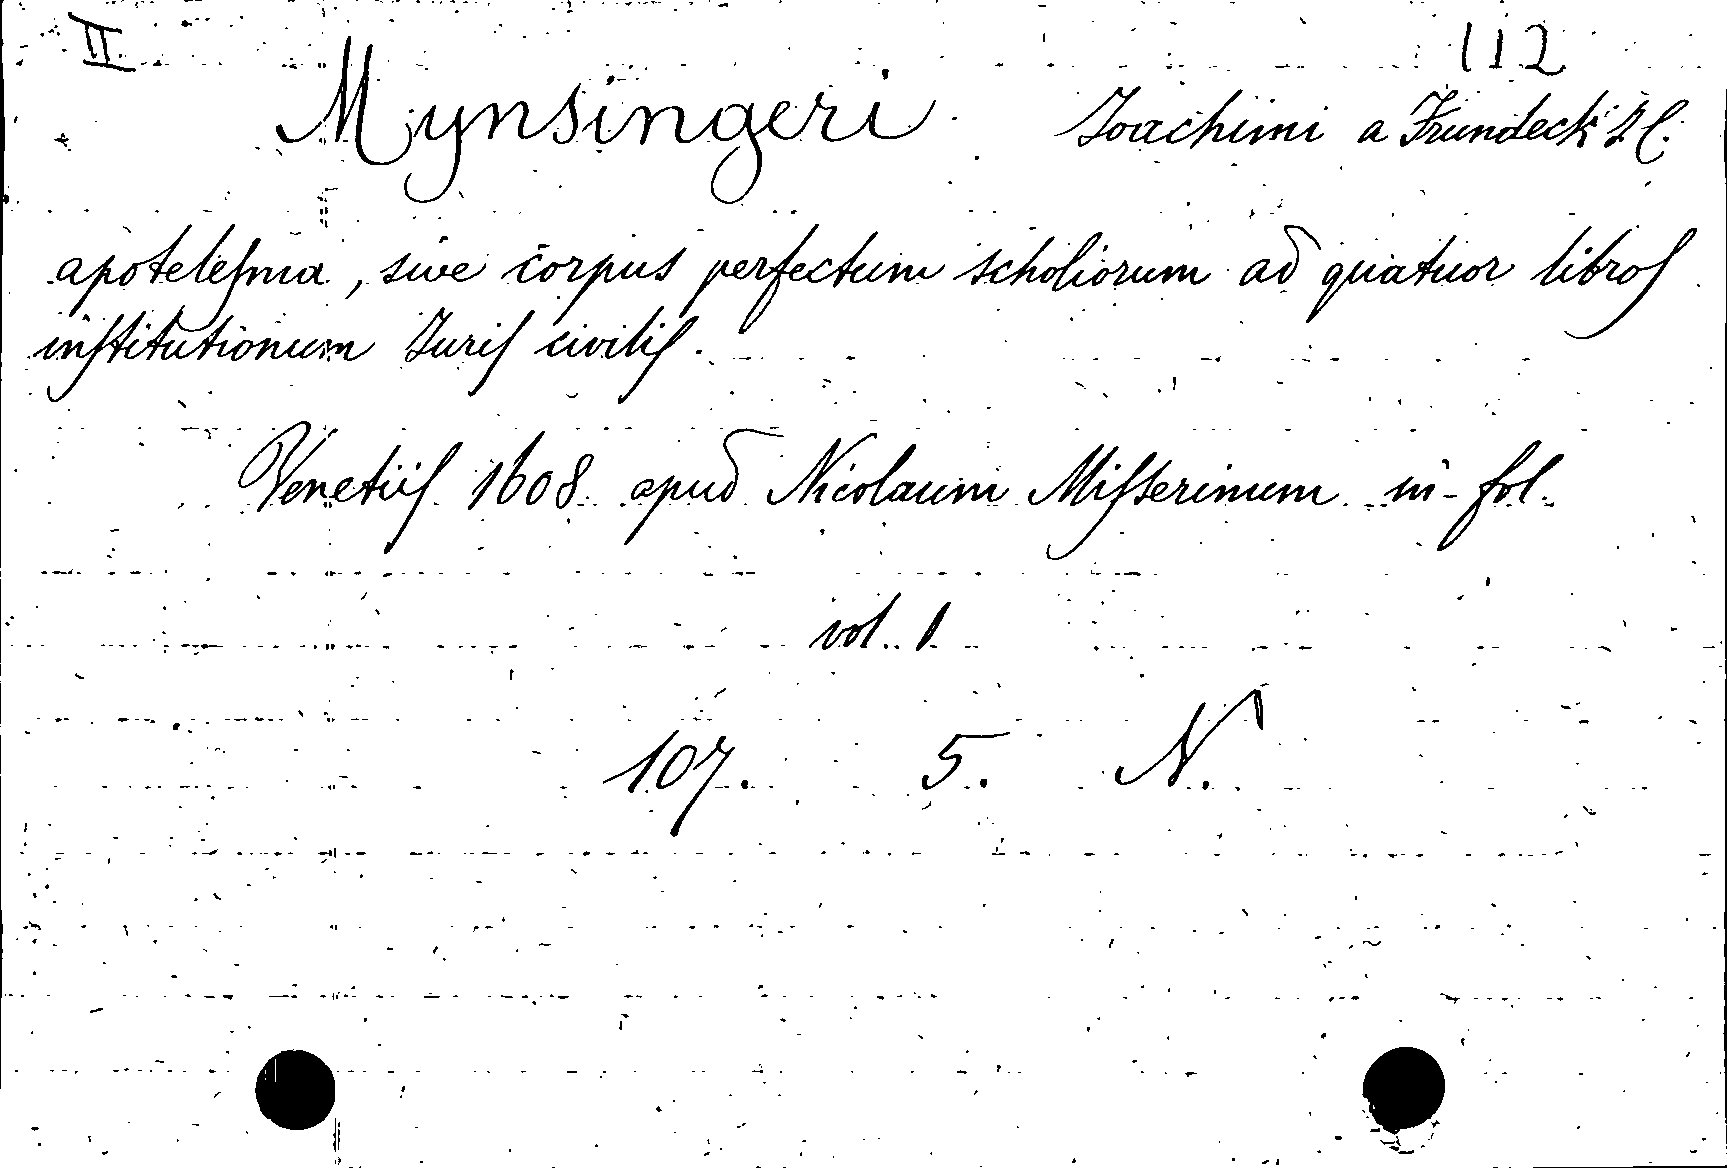 II 112
Mynsingeri Joachimi a Frundeck I C.
apotelesma, sive corpus perfectum scholiorum ad quatuor libros
institutionum Juris civilis.
Venetiis 1608 apud Nicolaum Misserinum in-fol.
vol. 1
107. 5. N.